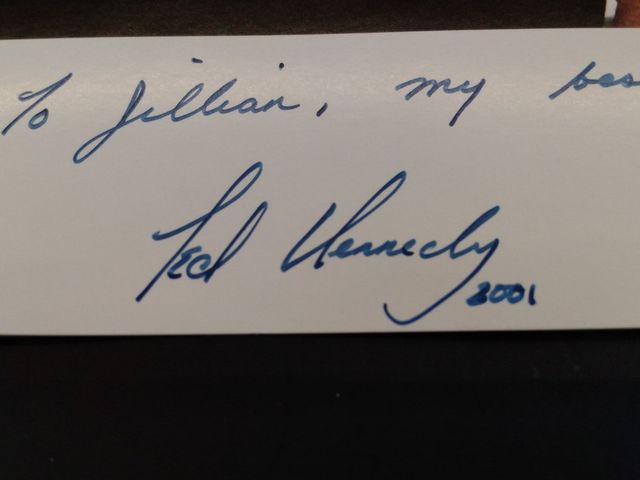 To Jillian, my bes
Ted Kennedy
2001